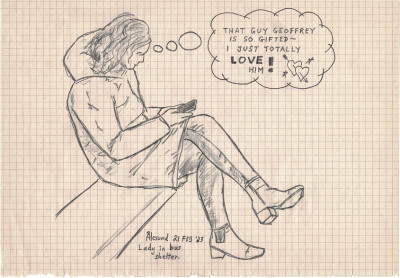 THAT GUY GEOFFREY
IS SO GIFTED~
I JUST TOTALLY
LOVE!
HIM
Ålesund 21 FEB '23
Lady in bus
shelter.